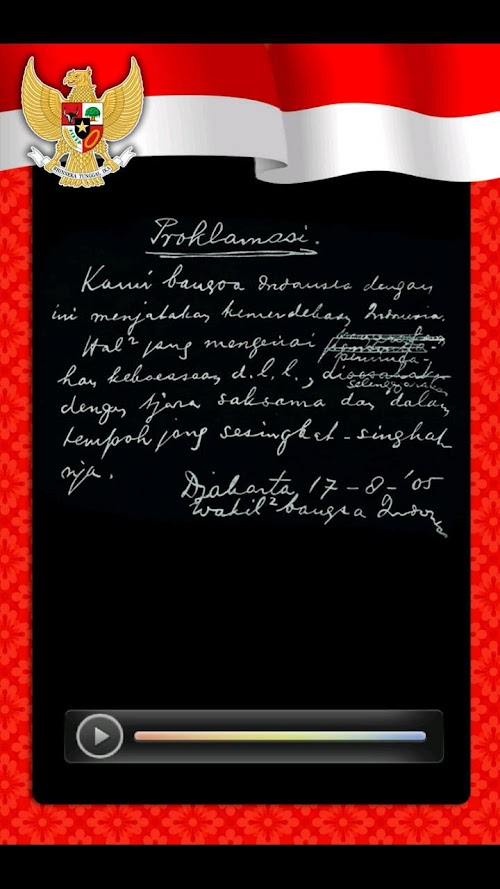 BHINNEKA TUNGGAL IKA
Proklamasi.
Kami bangsa Indonesia dengan
ini menjatakan kemerdekaan Indonesia.
Hal² jang mengenai
peminda-
han kekoeasaan d.l.l., dioesahakan
selenggarakan
dengan tjara saksama dan dalam
tempoh jang sesingkat-singkat
nja.
Djakarta 17-8-'05
Wakil² bangsa Indonesia